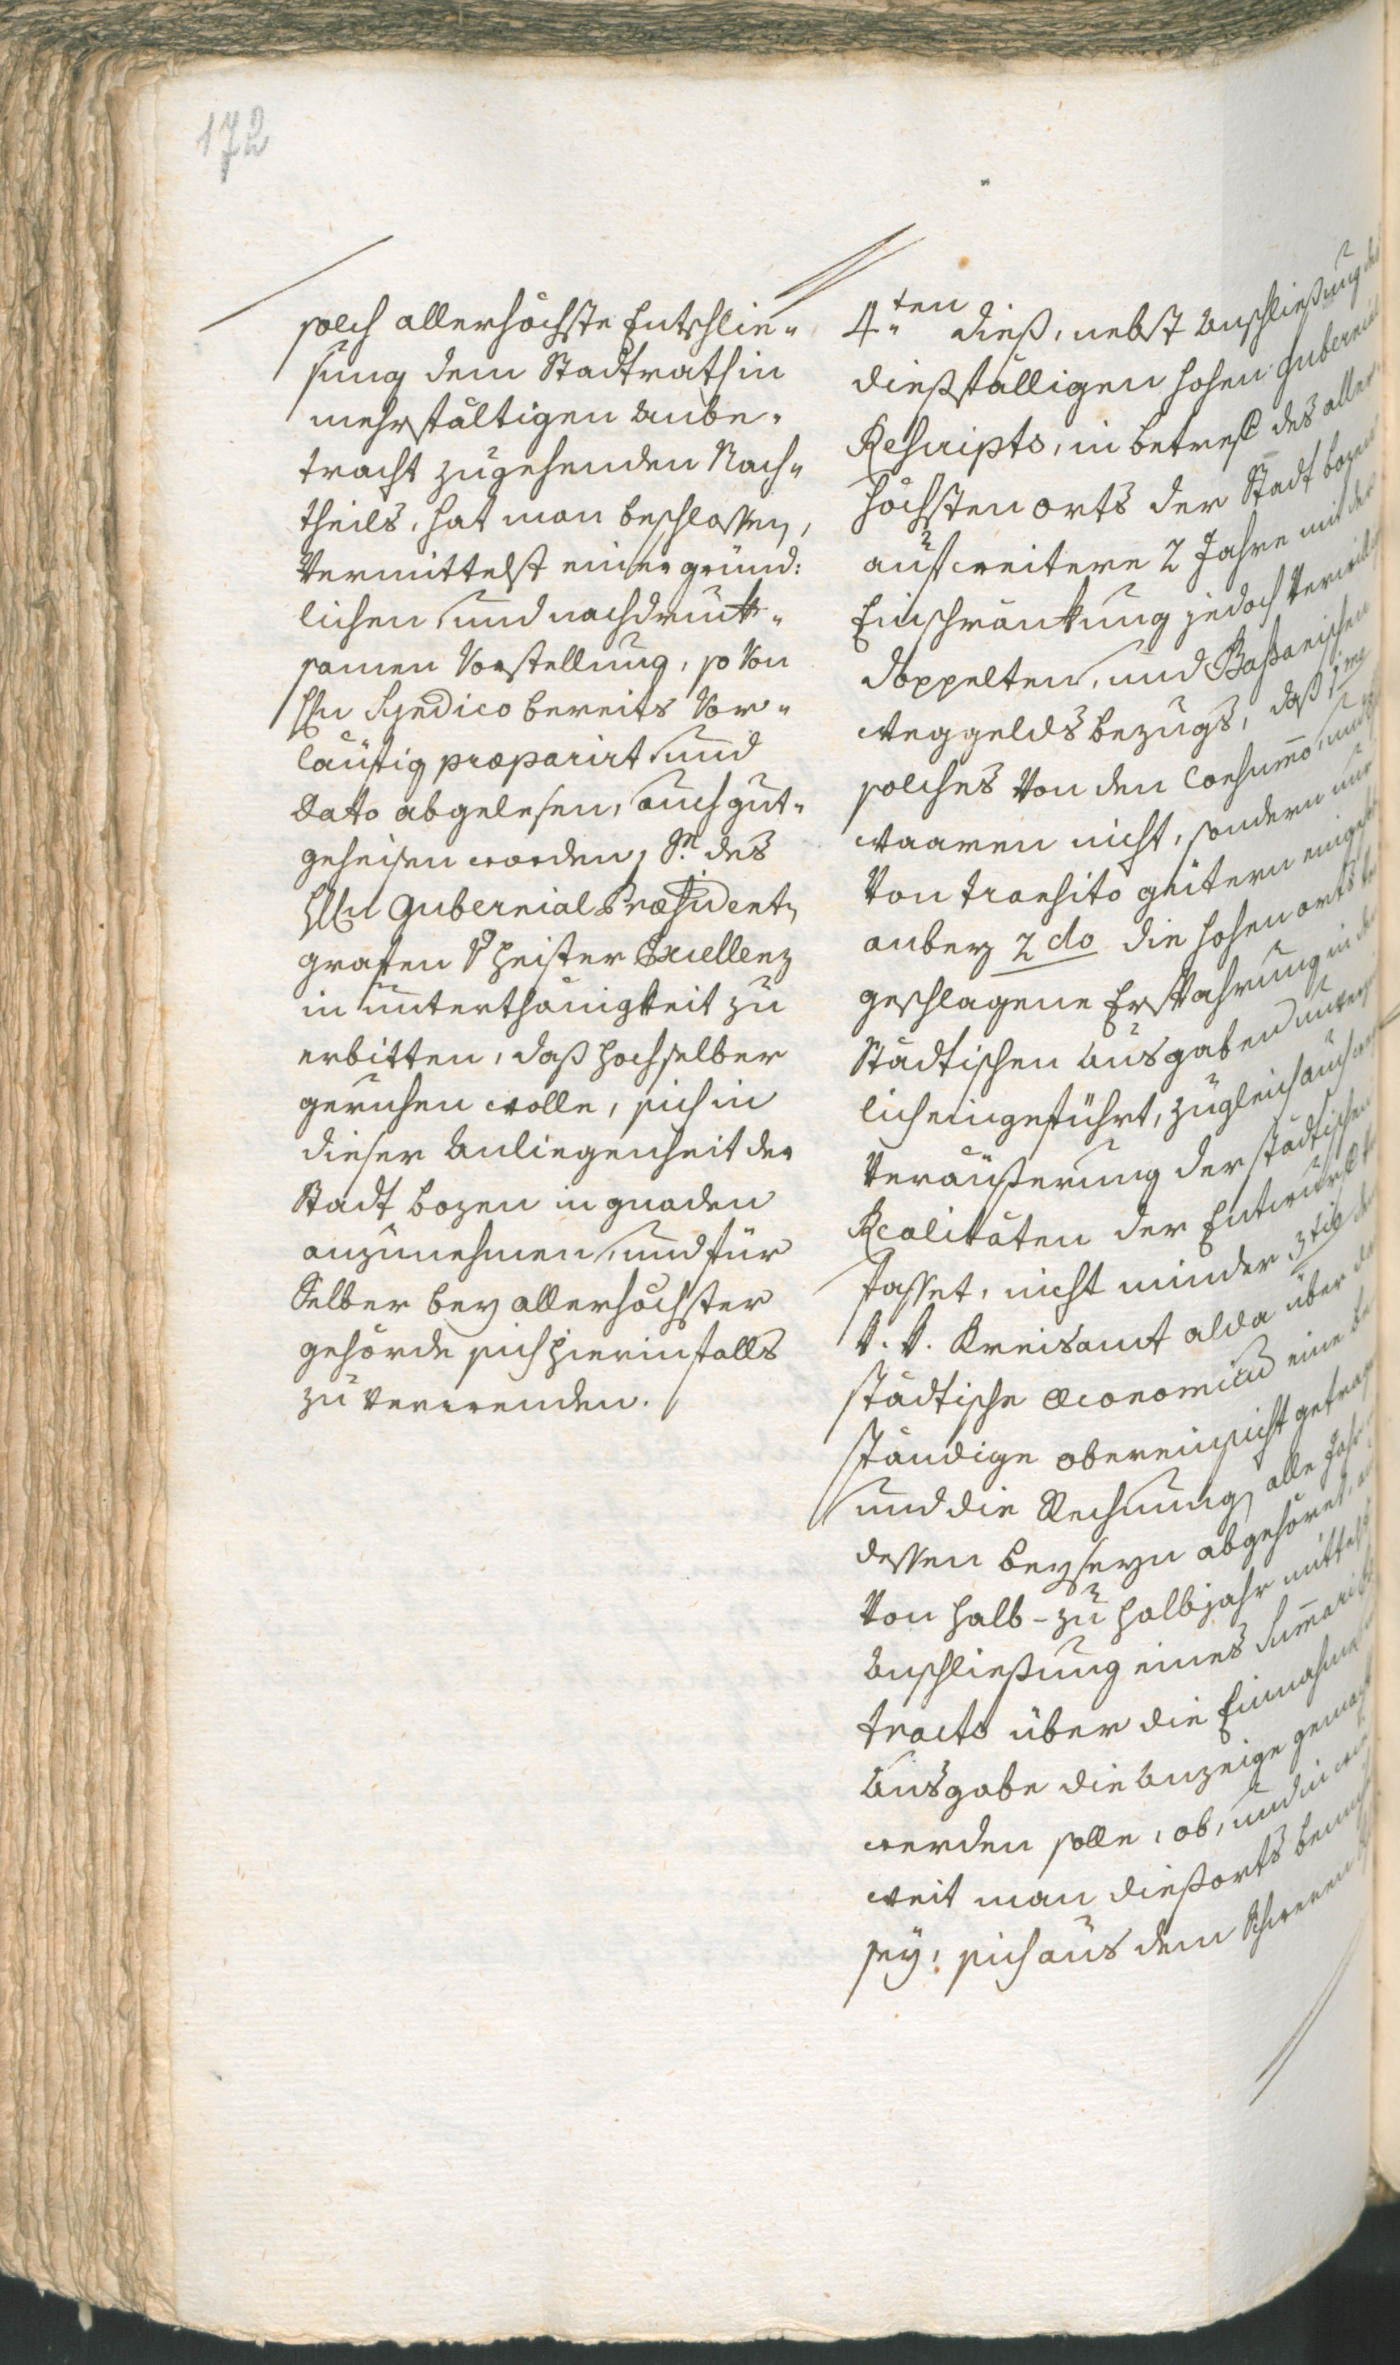 172
solch allerhöchste Entschlie-
sung dem Stadtrath in
mehrfältigen Anbe-
tracht zugehenden Nach-
theils, hat man beschlossen,
Vermittelst einer gründ:
lichen, und nachdruk-
samen Vorstellung, so von
Hrn Syndico bereits vor-
läufig præparirt und
dato abgelesen, auch gut-
geheisen worden, Sr. des
Hrrn Gubernial Præsidenten
grafen v Heister Excellenz
in unterthänigkeit zu
erbitten, daß hochselber
geruhen wolle, sich in
dieser Anliegenheit der
Stadt bozen in gnaden
anzunehmen, und für
Selber bey allerhöchster
gehörde sich hierinfalls
zu verwenden.
4ten dieß, nebst Anschließung des
dießfälligen hohen gubernial
Rescripts, in betref des aller-
höchsten orts der Stadt bozen
auf weitere 2 Jahre mit der
Einschränkung jedoch
doppelten, und Baßanischen
weggelds bezugs, daß 1mo
solches von den Consummo, und
waaren nicht, sondern nur
von transito gütern
anbey 2do die hohen orts
geschlagene Ersparung in den
Städtischen Ausgaben
lich eingeführt, zugleich auch
Veräußerung der städtischen
Realitäten der Entwurf
fasset, nicht minder 3tio
k. k. Kreisamt alda über die
städtische oeconomie eine
ständige obereinsicht getragen
und die Rechnung alle Jahr in
dessen beyseyn abgehöret,
von halb- zu halbjahr mittelst
Anschließung eines Summari
tracts über die Einnahme
Ausgabe die Anzeige gemacht
werden solle, ob, und in wie
weit man dießorts
sey, sich aus dem schweren